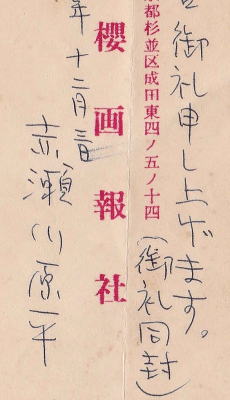 御礼申し上げます。
(御礼同封)
京都杉並区成田東四ノ五ノ十四
櫻画報社
年十二月三日
赤瀬川原平